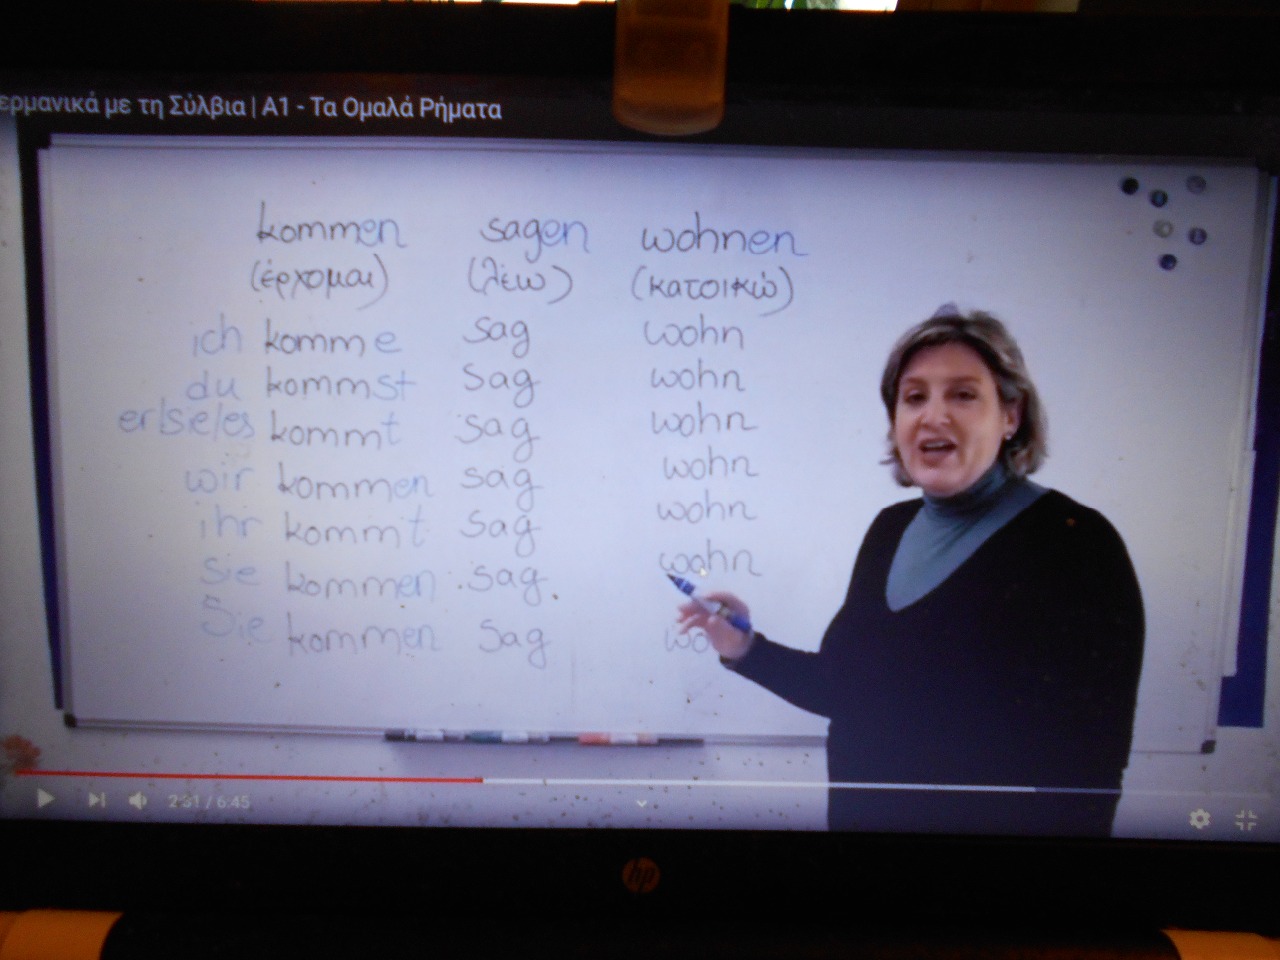 ερμανικά με τη Σύλβια | A1 - Τα Ομαλά Ρήματα
kommen sagen wohnen
(έρχομαι) (λέω) (κατοικώ)
ich komme sag wohn
du kommst sag wohn
er/sie/es kommt sag wohn
wir kommen sag wohn
ihr kommt sag wohn
sie kommen sag wohn
Sie kommen sag wo
2:31 / 6:45
hp